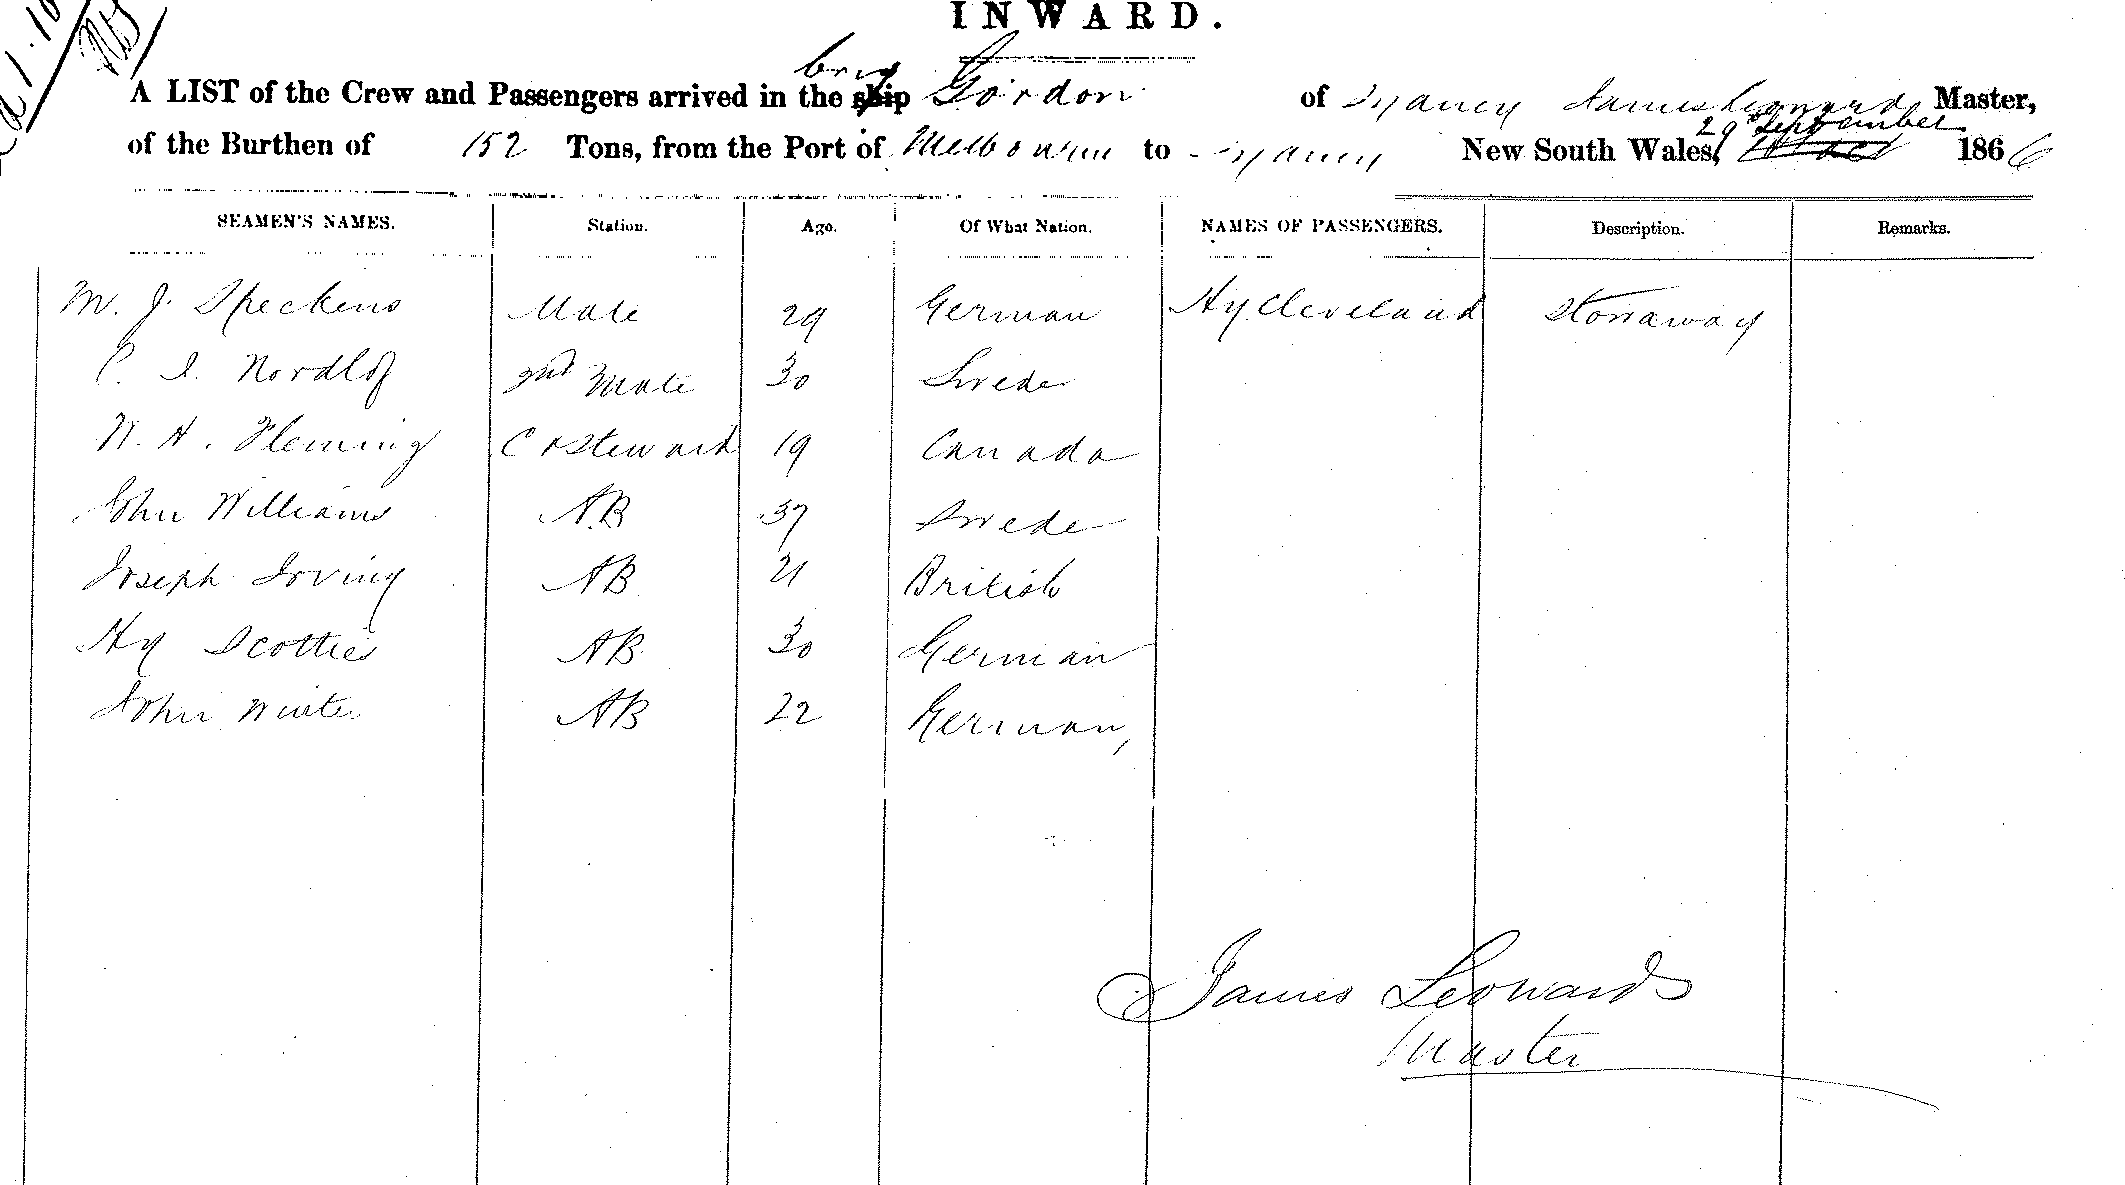 INWARD.
brig
A LIST of the Crew and Passengers arrived in the ship Gordon of Sydney James Leonards Master,
29 September
of the Burthen of 152 Tons, from the Port of Melbourne to Sydney New South Wales, 1866
SEAMEN'S NAMES. Station. Age. Of What Nation. NAMES OF PASSENGERS. Description. Remarks.
M. J. Speckens Mate 29 German Hy Cleveland Stonaway
C. I. Nordlof 2nd Mate 30 Swede
W. H. Fleming C & Steward 19 Canada
John Williams AB 37 Swede
Joseph Irving AB 21 British
Hy Scotties AB 30 German
John Winter AB 22 German,
James Leonards
Master